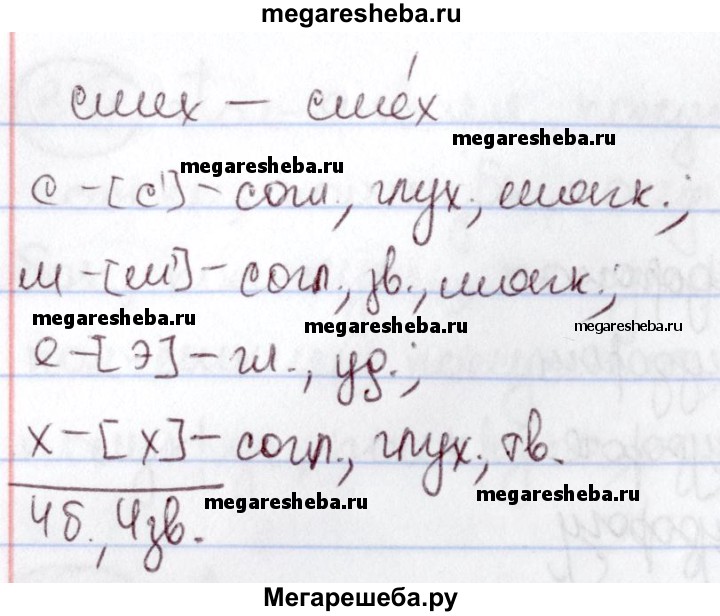 megaresheba.ru
смех — сме́х
megaresheba.ru
megaresheba.ru
с - [с'] - согл., глух., мягк.;
м - [м'] - согл., зв., мягк.;
megaresheba.ru megaresheba.ru megaresheba.ru
е - [э] - гл., уд.;
х - [х] - согл., глух., тв.
megaresheba.ru megaresheba.ru
4 б., 4 зв.
Мегарешеба.ру